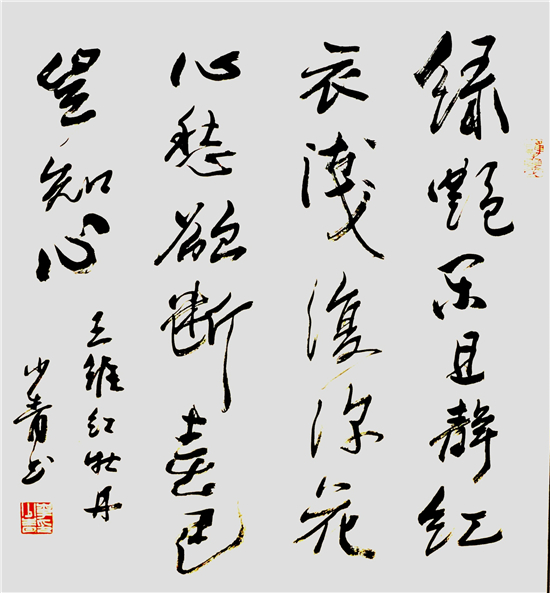 绿艷闲且静红
衣浅復深花
心愁欲断春色
豈知心
王维红牡丹
少青书